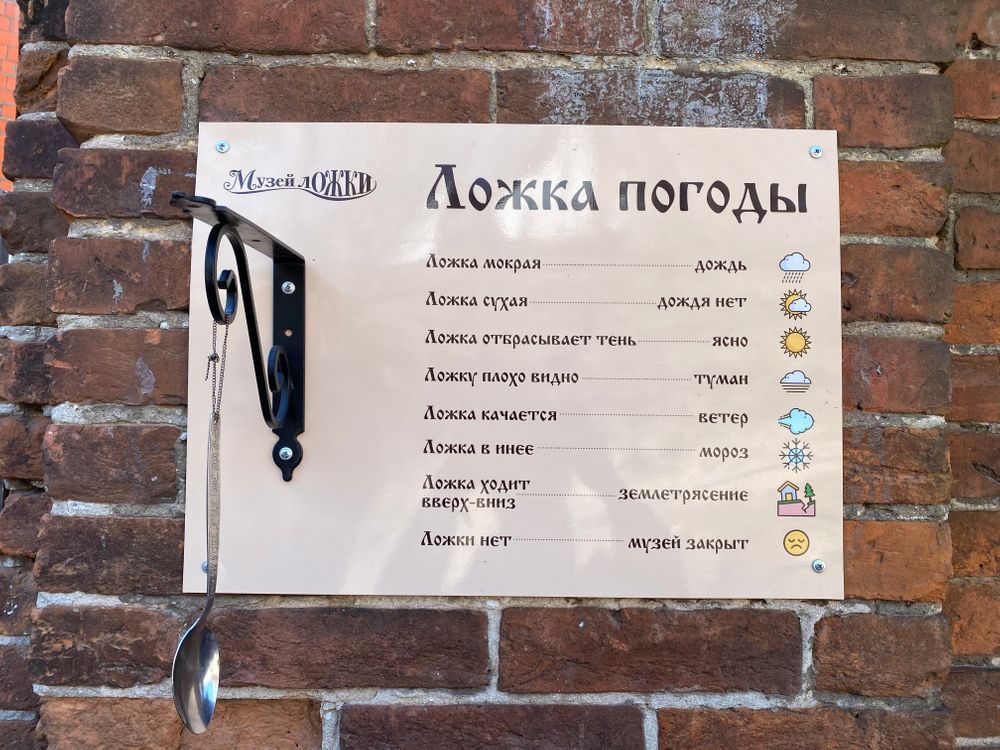 Музей лОЖКИ
Ложка погоды
Ложка мокрая дождь
Ложка сухая дождя нет
Ложка отбрасывает тень ясно
Ложку плохо видно туман
Ложка качается ветер
Ложка в инее мороз
Ложка ходит
вверх-вниз землетрясение
Ложки нет музей закрыт